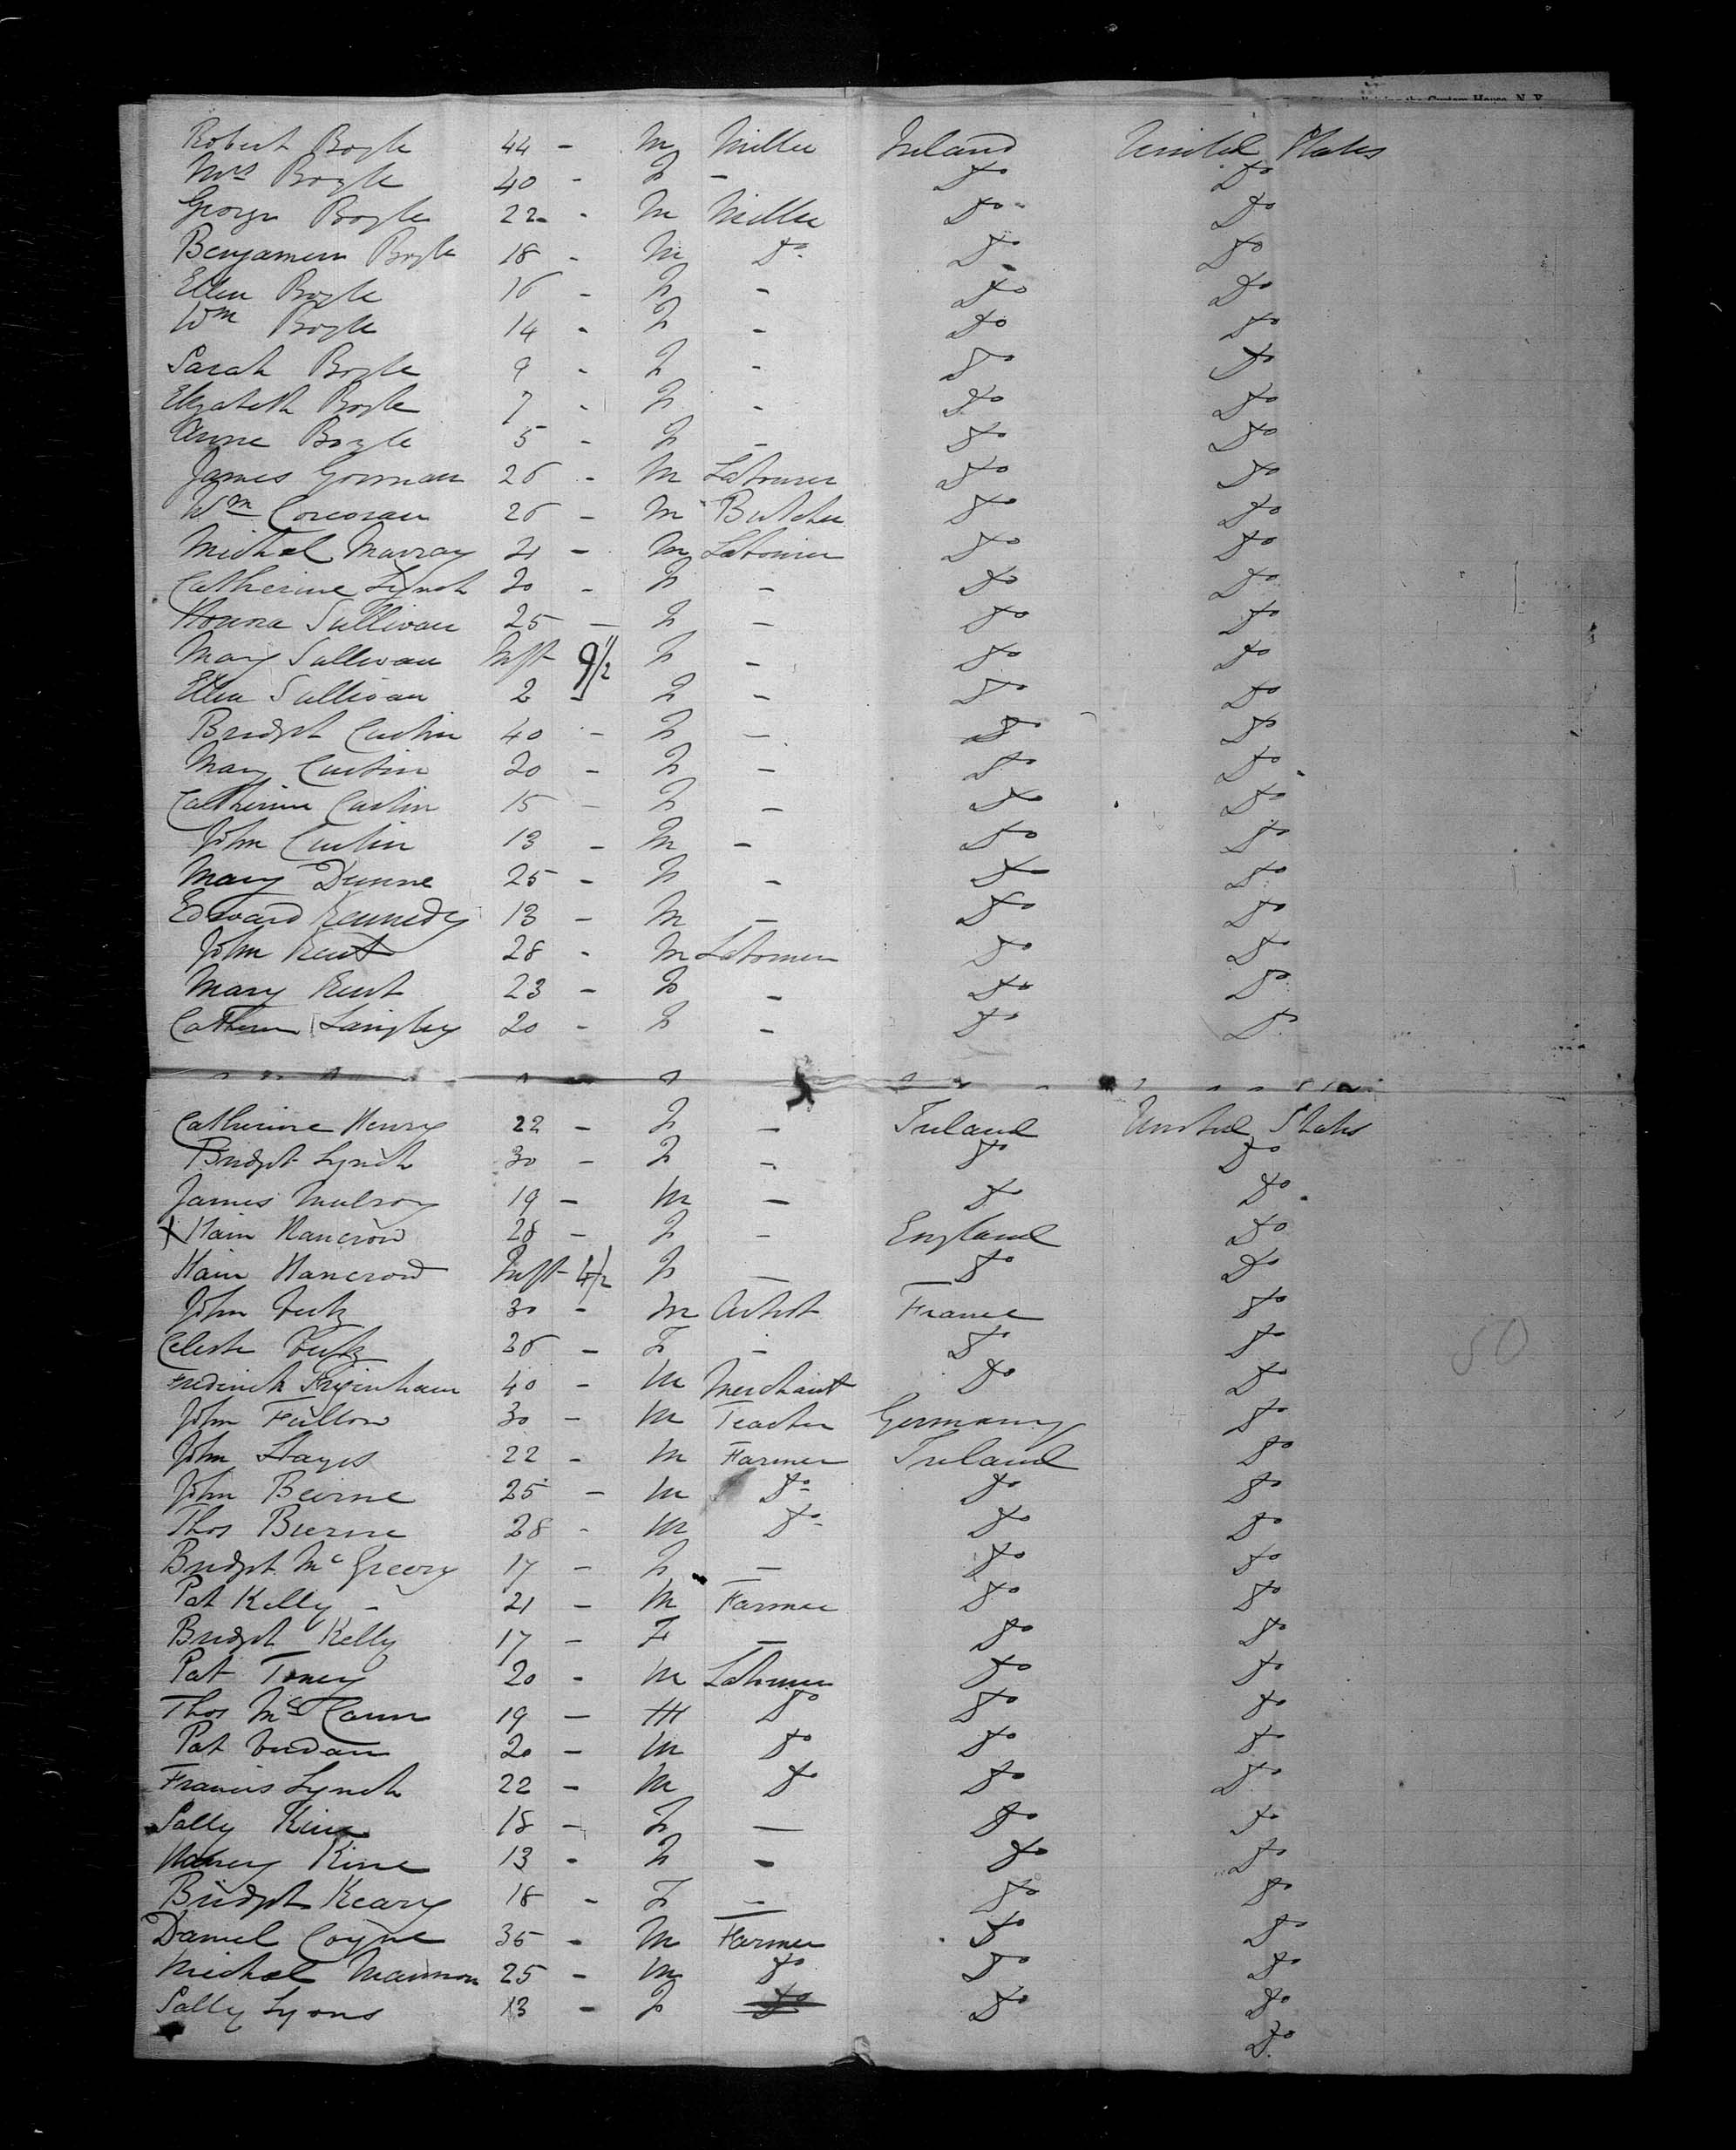 Robert Boyle 44 - M Miller Ireland United States
Mrs Boyle 40 - F - Do Do
George Boyle 22 - M Miller Do Do
Benjamin Boyle 18 - M Do Do Do
Ellen Boyle 16 - F - Do Do
Wm Boyle 14 - F - Do Do
Sarah Boyle 9 - F - Do Do
Elizabeth Boyle 7 - F - Do Do
Anne Boyle 5 - F - Do Do
James Gorman 26 - M Labourer Do Do
Wm Corcoran 26 - M Butcher Do Do
Michael Murray 21 - M Labourer Do Do
Catherine Lynch 20 - F - Do Do
Honora Sullivan 25 - F - Do Do
Mary Sullivan Inft F - Do Do
Ellen Sullivan 2 - F - Do Do
Bridget Curtin 40 - F - Do Do
Mary Curtin 20 - F - Do Do
Catherine Curtin 15 - F - Do Do
John Curtin 13 - M - Do Do
Mary Dunne 25 - F - Do Do
Edward Kennedy 13 - M - Do Do
John Kent 28 - M Labourer Do Do
Mary Kent 23 - F - Do Do
Catherine Langley 20 - F - Do Do
Catherine Henry 22 - F - Ireland United States
Bridget Lynch 30 - F - Do Do
James Mulroy 19 - M - Do Do
28 - F - England Do
Inft F - Do Do
John 30 - M Artist France Do
Celeste 26 - F - Do Do
Frederick 40 - M Merchant Do Do
John Fullow 30 - M Teacher Germany Do
John Hayes 22 - M Farmer Ireland Do
John Beirne 25 - M Do Do Do
Thos Bierne 28 - M Do Do Do
Bridget McGreevy 17 - F - Do Do
Pat Kelly - 21 - M Farmer Do Do
Bridget Kelly 17 - F - Do Do
Pat Toney 20 - M Labourer Do Do
Thos McCann 19 - M Do Do Do
Pat 20 - M Do Do Do
Francis Lynch 22 - M Do Do Do
Sally Kine 18 - F - Do Do
Nancy Kine 13 - F - Do Do
Bridget Keary 18 - F - Do Do
Daniel Coyne 35 - M Farmer Do Do
Michael 25 - M Do Do Do
Sally Lyons 13 - F Do Do Do
Do
50